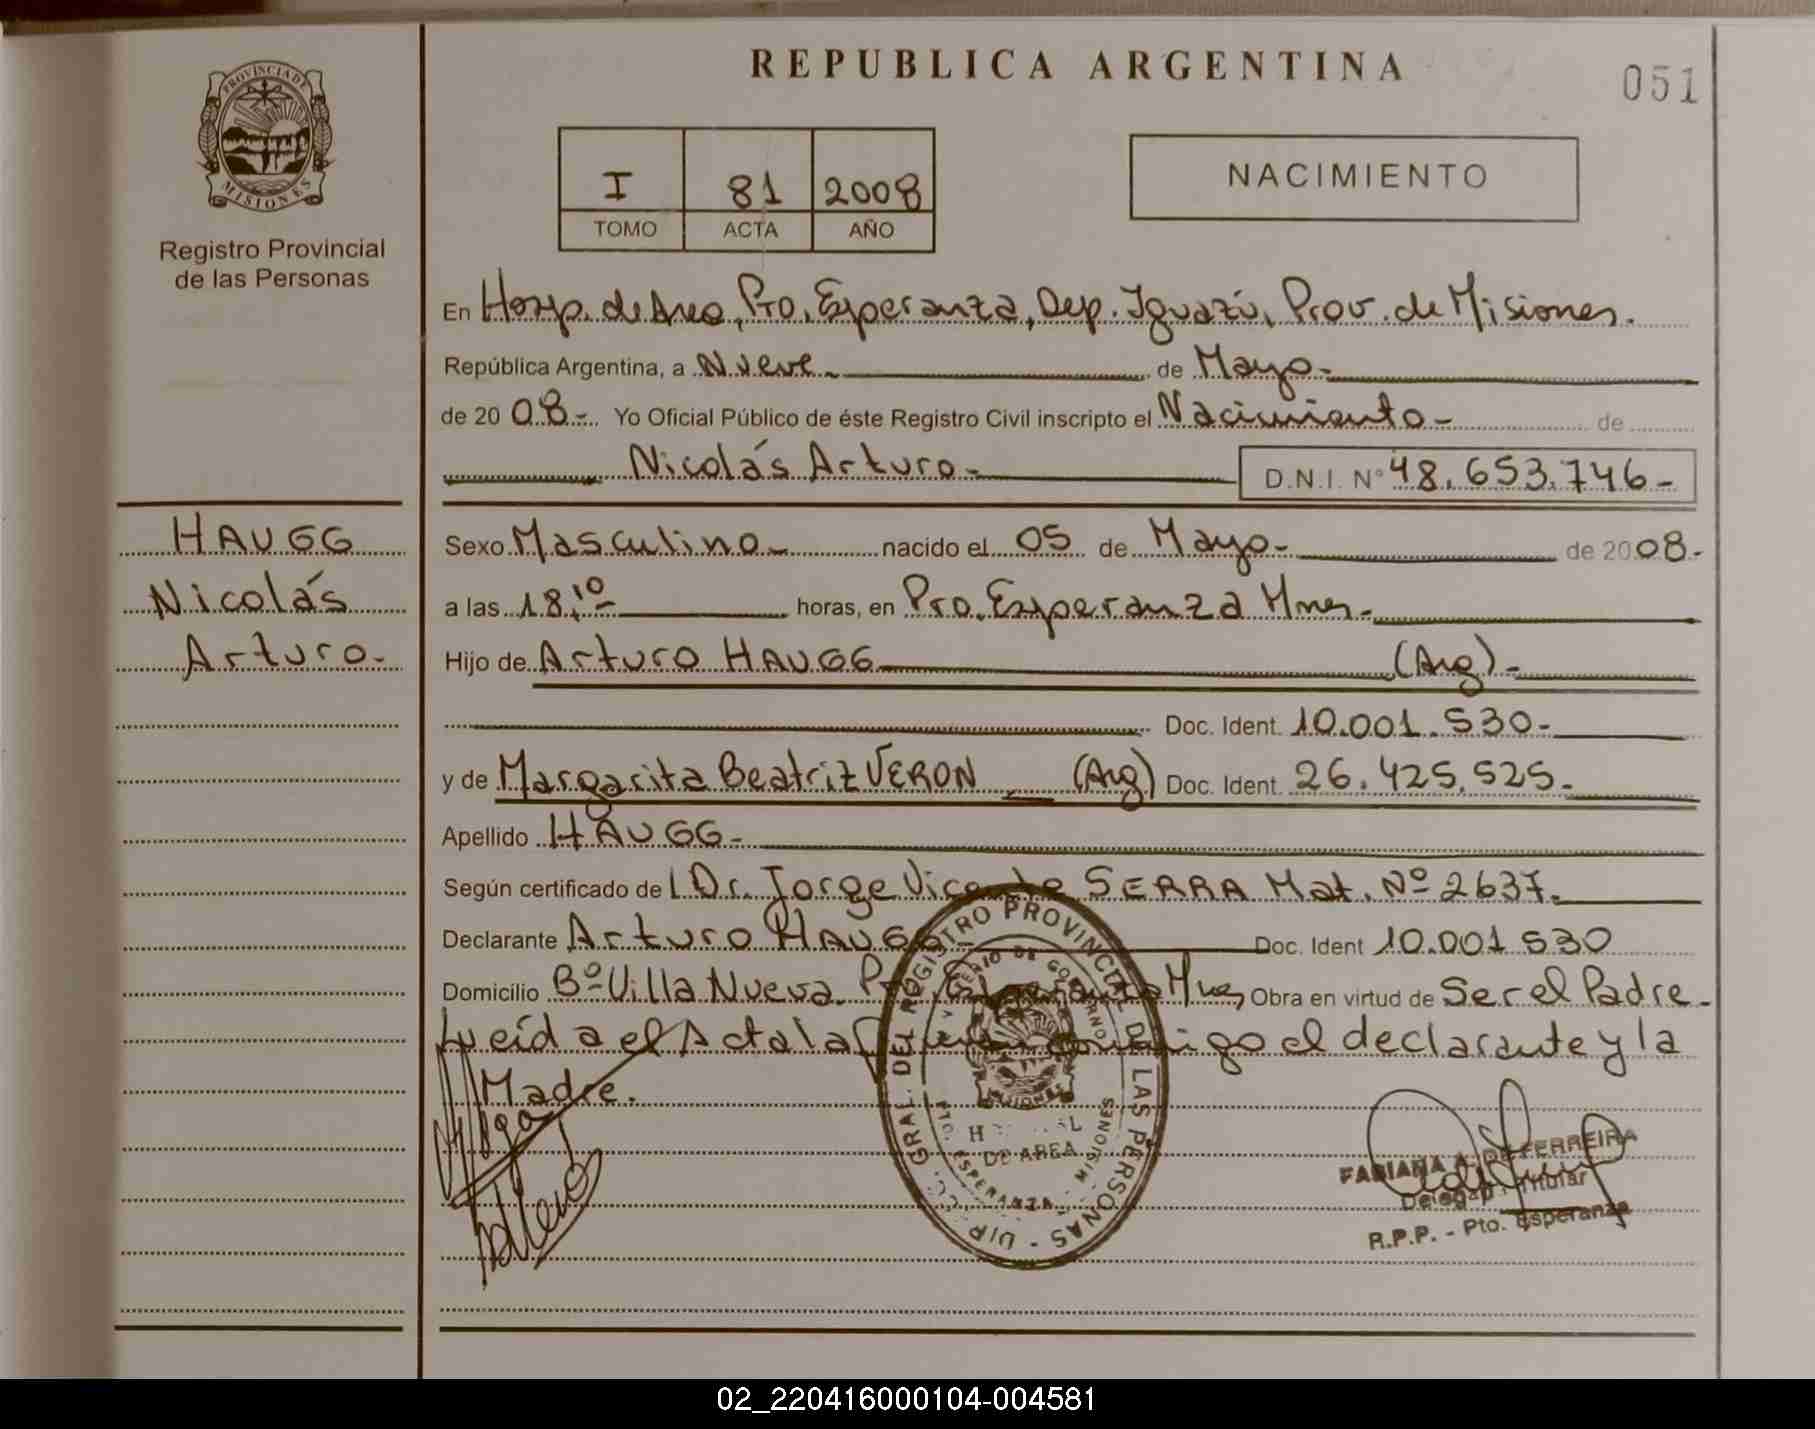 PROVINCIA DE
MISIONES
Registro Provincial
de las Personas
REPUBLICA ARGENTINA
051
I 81 2008
TOMO ACTA AÑO
NACIMIENTO
En Hosp. de Area, Pto. Esperanza, Dep. Iguazú, Prov. de Misiones.
República Argentina, a Nueve de Mayo
de 20 08 Yo Oficial Público de éste Registro Civil inscripto el Nacimiento de
Nicolás Arturo D.N.I. Nº 48.653.746
HAUGG
Nicolás
Arturo
Sexo Masculino nacido el 05 de Mayo de 2008
a las 18,10 horas, en Pto. Esperanza Mnes.
Hijo de Arturo HAUGG (Arg)
Doc. Ident. 10.001.530
y de Margarita Beatriz VERON (Arg) Doc. Ident. 26.425.525
Apellido HAUGG
Según certificado de l Dr. Jorge Vicente SERRA Mat. Nº 2637.
Declarante Arturo HAUGG Doc. Ident 10.001.530
Domicilio Bº Villa Nueva Pto. Esperanza Mnes, Obra en virtud de Ser el Padre
Leída el Acta la firman conmigo el declarante y la
Madre.
DIR. GRAL. DEL REGISTRO PROVINCIAL DE LAS PERSONAS
DE GOBIERNO
MISIONES
DE AREA
PTO. ESPERANZA - MISIONES
FABIANA A. DE FERREIRA
Delegada Titular
R.P.P. - Pto. Esperanza
02_220416000104-004581